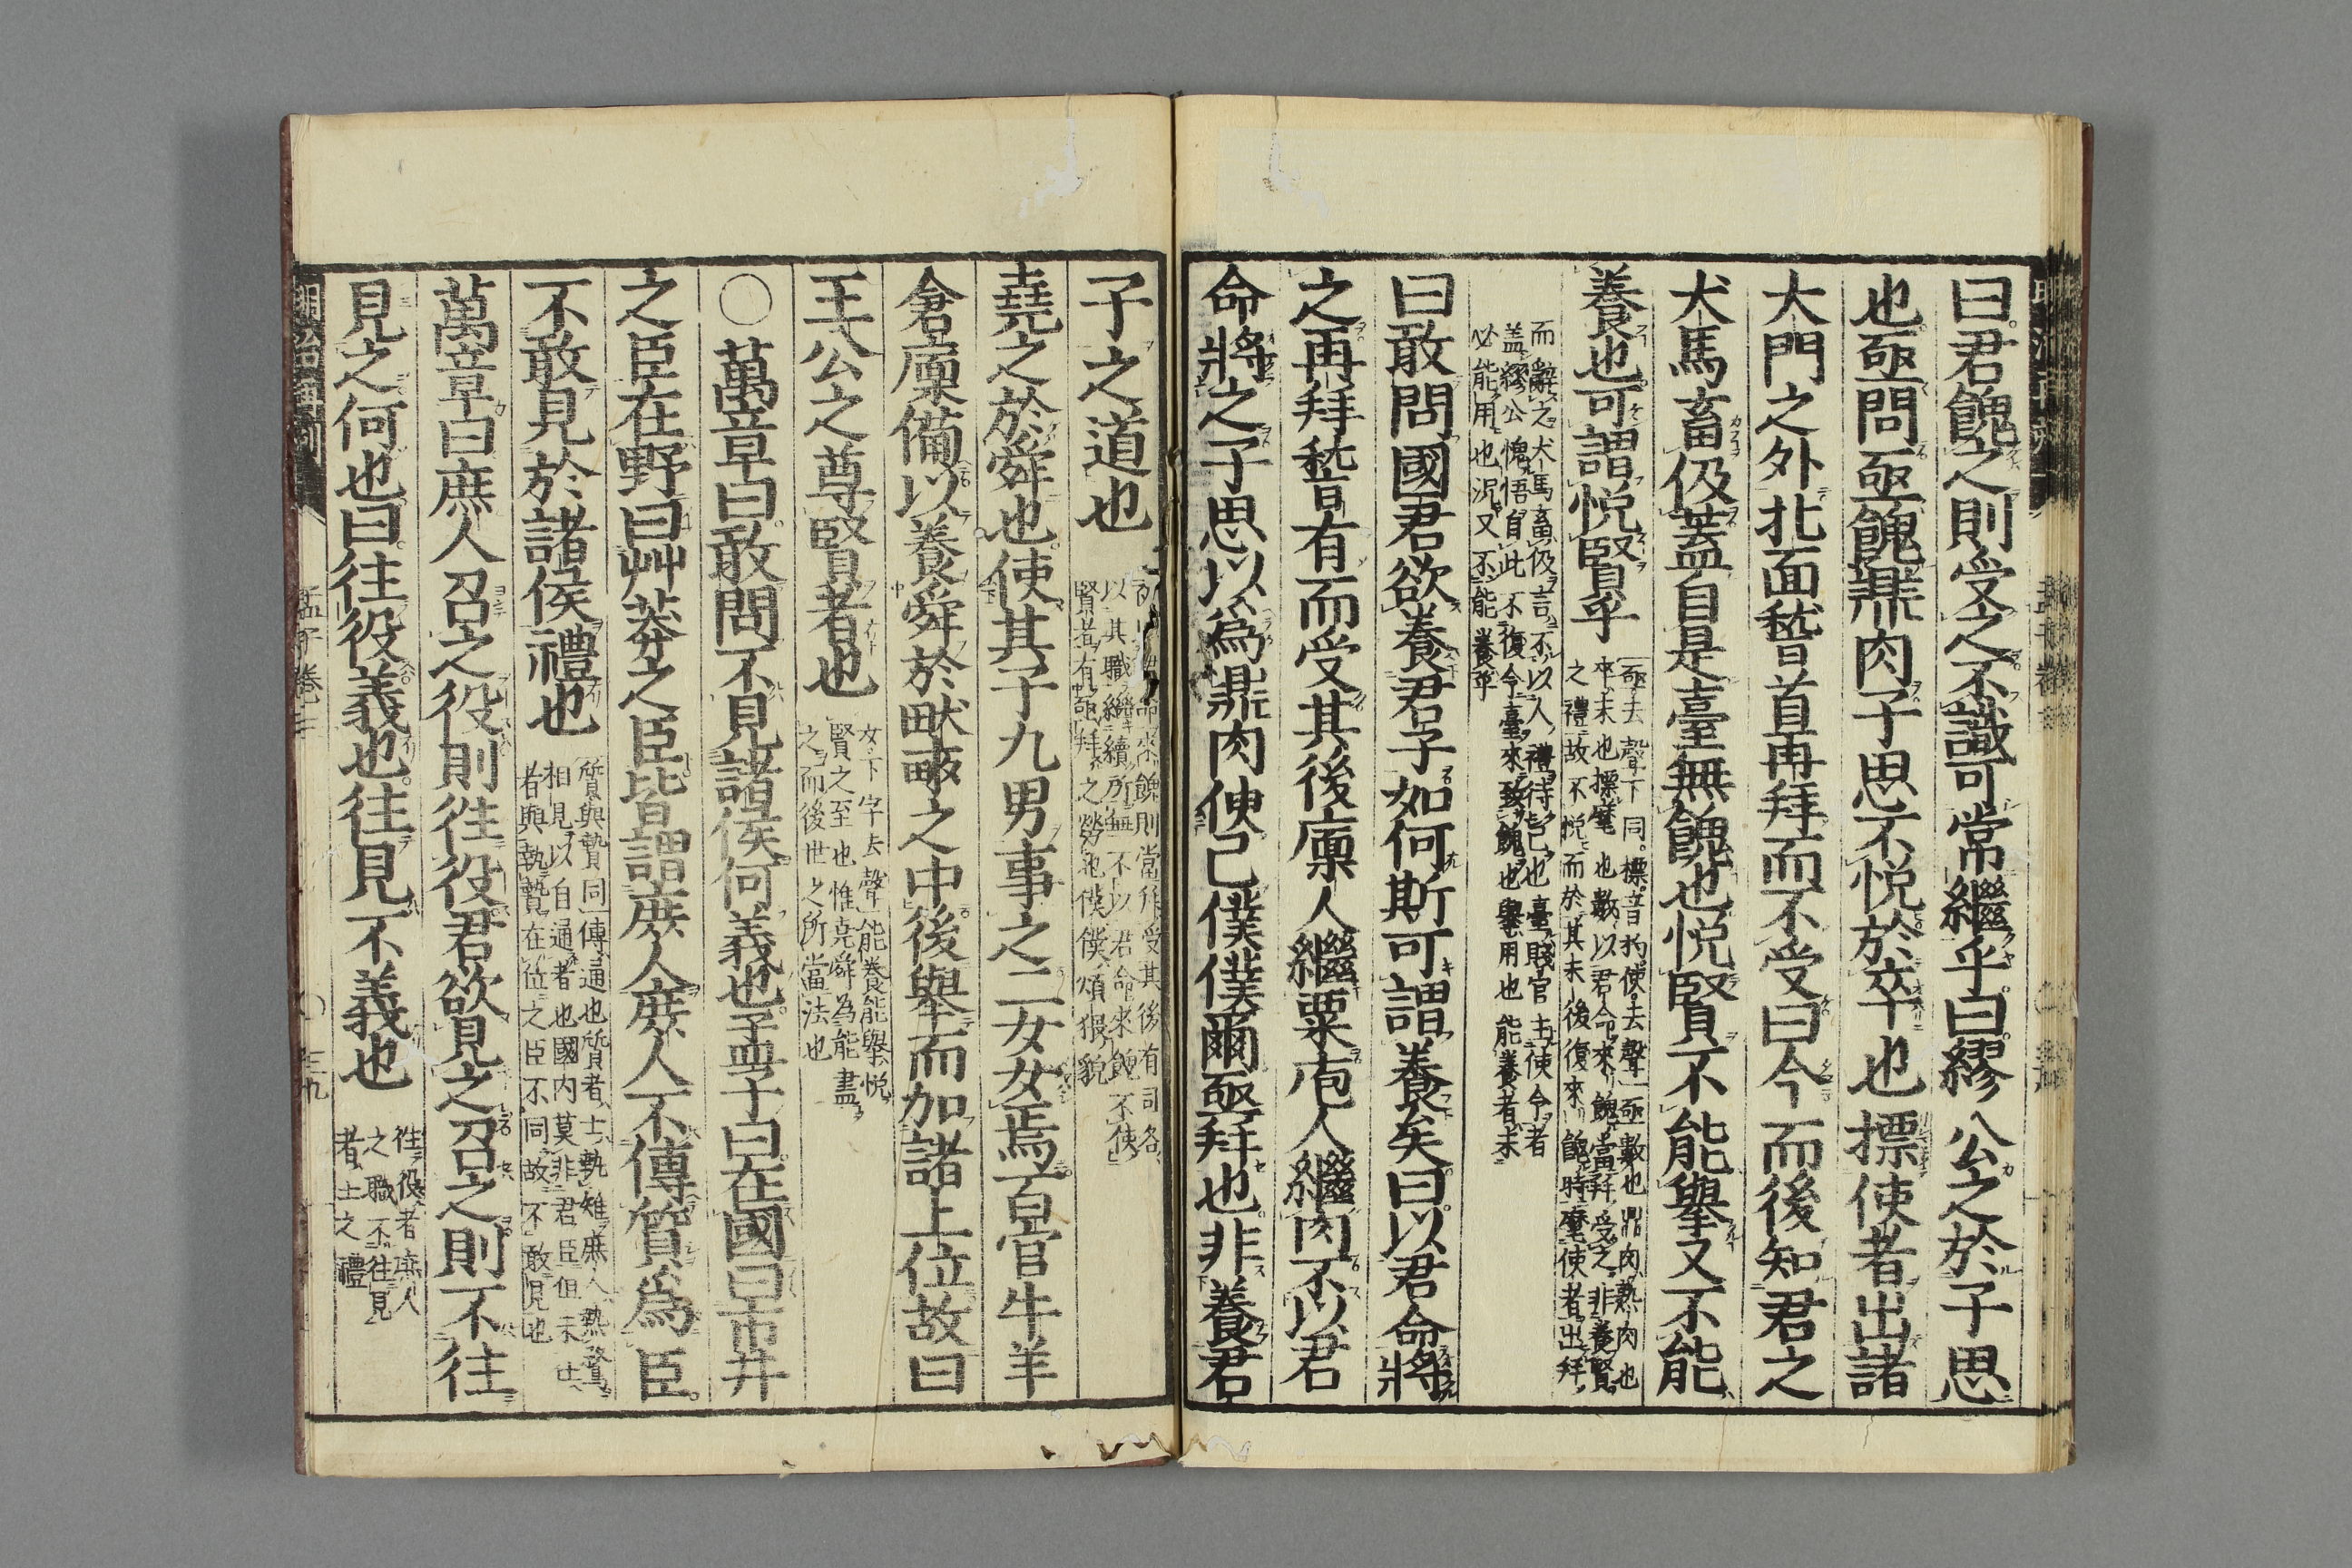 曰君餽之則受之不識可常繼乎曰繆公之於子思
也亟問亟餽鼎肉子思不悅於卒也摽使者出諸
大門之外北面稽首再拜而不受曰今而後知君之
犬馬畜伋蓋自是臺無餽也悅賢不能舉又不能
養也可謂悅賢乎
亟去聲下同摽音杓使去聲亟數也鼎肉熟肉也
卒末也摽麾也數以君命來餽當拜受之非養賢
之禮故不悅而於其末後復來餽時麾使者出拜
而辭之犬馬畜伋言不以人禮待己也臺賤官主使令者
盖繆公愧悟自此不復令臺來致餽也舉用也能養者未
必能用也況又不能養乎
曰敢問國君欲養君子如何斯可謂養矣曰以君命將
之再拜稽首而受其後廩人繼粟庖人繼肉不以君
命將之子思以爲鼎肉使己僕僕爾亟拜也非養君
子之道也
命來餽則當拜受其後有司各
以其職繼續所無不以君命來餽不使
賢者有亟拜之勞也僕僕煩猥貌
堯之於舜也使其子九男事之二女女焉百官牛羊
倉廩備以養舜於畎畝之中後舉而加諸上位故曰
王公之尊賢者也
女下字去聲能養能舉悅
賢之至也惟堯舜為能盡
之而後世之所當法也
○萬章曰敢問不見諸侯何義也孟子曰在國曰市井
之臣在野曰艸莽之臣皆謂庶人庶人不傳質爲臣
不敢見於諸侯禮也
質與贄同傳通也質者士執雉庶人執鶩
相見以自通者也國内莫非君臣但未仕
者與執贄在位之臣不同故不敢見也
萬章曰庶人召之役則往役君欲見之召之則不往
見之何也曰往役義也往見不義也
往役者庶人
之職不往見
者士之禮
孟子卷三
三九